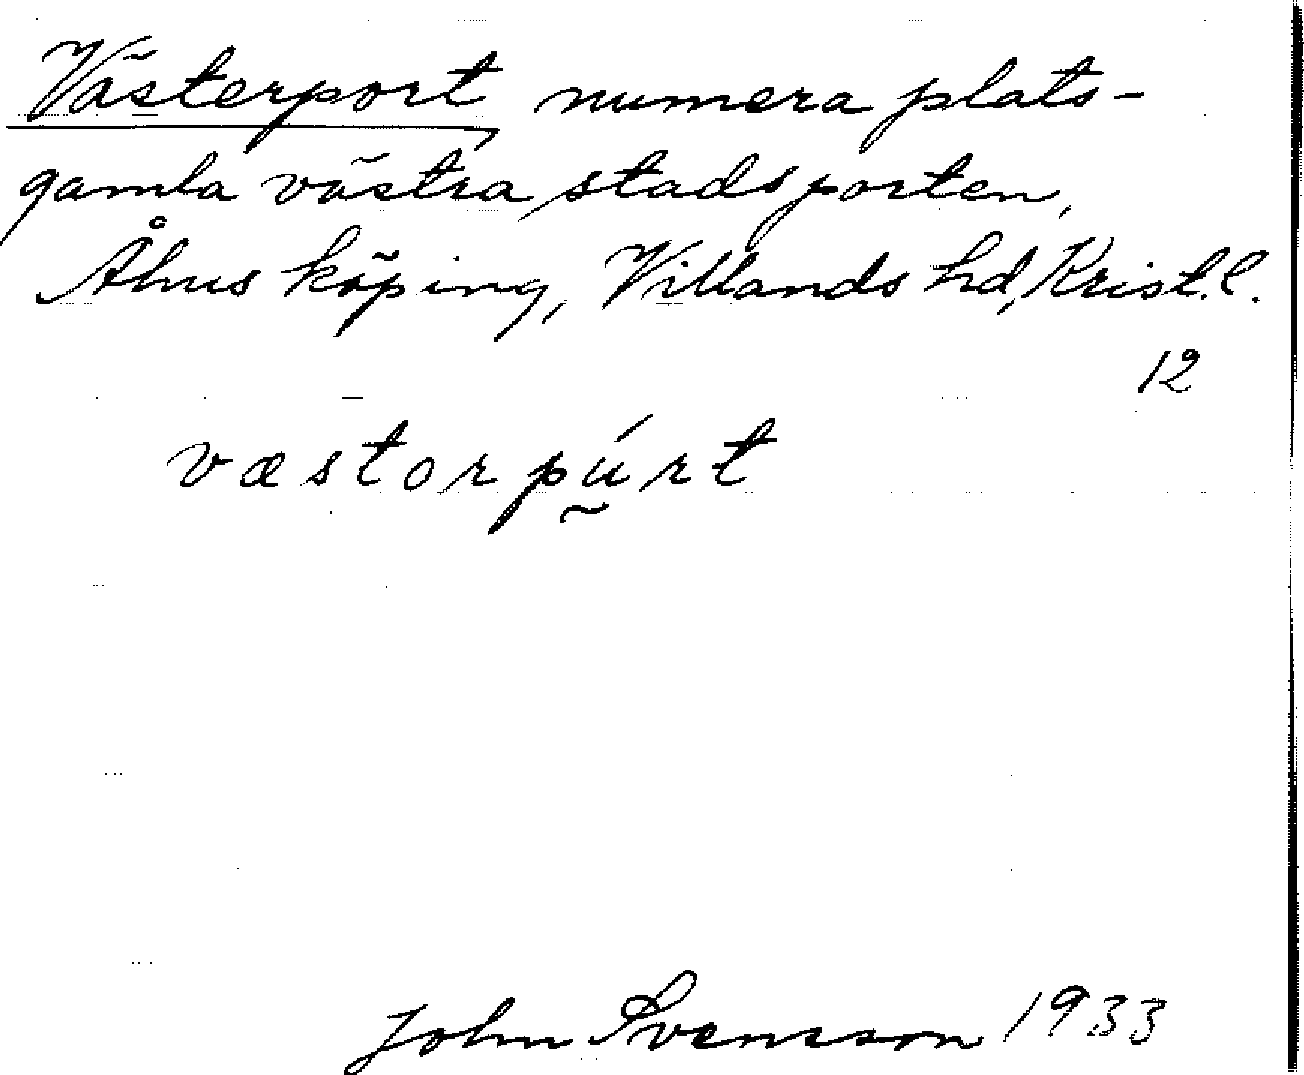 Västerport, numera plats-
gamla västra stadsporten,
Åhus köping, Villands hd, Krist. l.
12
væstorpṵ́rt
John Svensson 1933